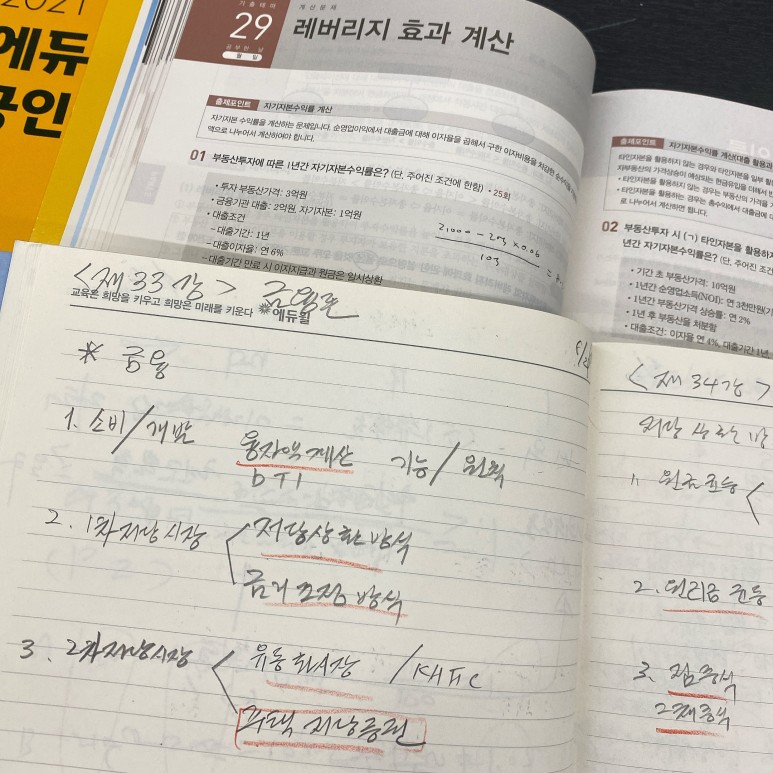 2021
에듀
공인
기출테마
29
공부한 날
월 일
계산문제
레버리지 효과 계산
출제포인트 자기자본수익률 계산
자기자본 수익률을 계산하는 문제입니다. 순영업이익에서 대출금에 대해 이자율을 곱해서 구한 이자비용을 차감한
액으로 나누어서 계산하여야 합니다.
01 부동산투자에 따른 1년간 자기자본수익률은? (단, 주어진 조건에 한함) • 25회
• 투자 부동산가격: 3억원
• 금융기관 대출: 2억원, 자기자본: 1억원
• 대출조건
– 대출기간: 1년
– 대출이자율: 연 6%
– 대출기간 만료 시 이자지급과 원금은 일시상환
출제포인트 자기자본수익률 계산(대출 활용과
타인자본을 활용하지 않는 경우와 타인자본을 일부 활
• 타인자본을 활용하지 않는 경우는 부동산의 가격을
• 타인자본을 활용하는 경우는 총수익에서 대출이
로 나누어서 계산하면 됩니다.
02 부동산투자 시 (ㄱ) 타인자본을 활용하지
년간 자기자본수익률은? (단, 주어진 조건
• 기간 초 부동산가격: 10억원
• 1년간 순영업소득(NOI): 연 3천만원(기
• 1년간 부동산가격 상승률: 연 2%
• 1년 후 부동산을 처분함
• 대출조건: 이자율 연 4%, 대출기간 1년,
<제 33강> 금융론
교육은 희망을 키우고 희망은 미래를 키운다 에듀윌
* 금융
1. 소비/개발 융자액계산 기능/원칙
DTI
2. 1차저당시장 저당상환방식
금리조정 방식
3. 2차저당시장 유동화시장
주택 저당증권
<제 34강>
저당 상환 방
1. 원금균등
2. 원리금 균등
3. 점증식